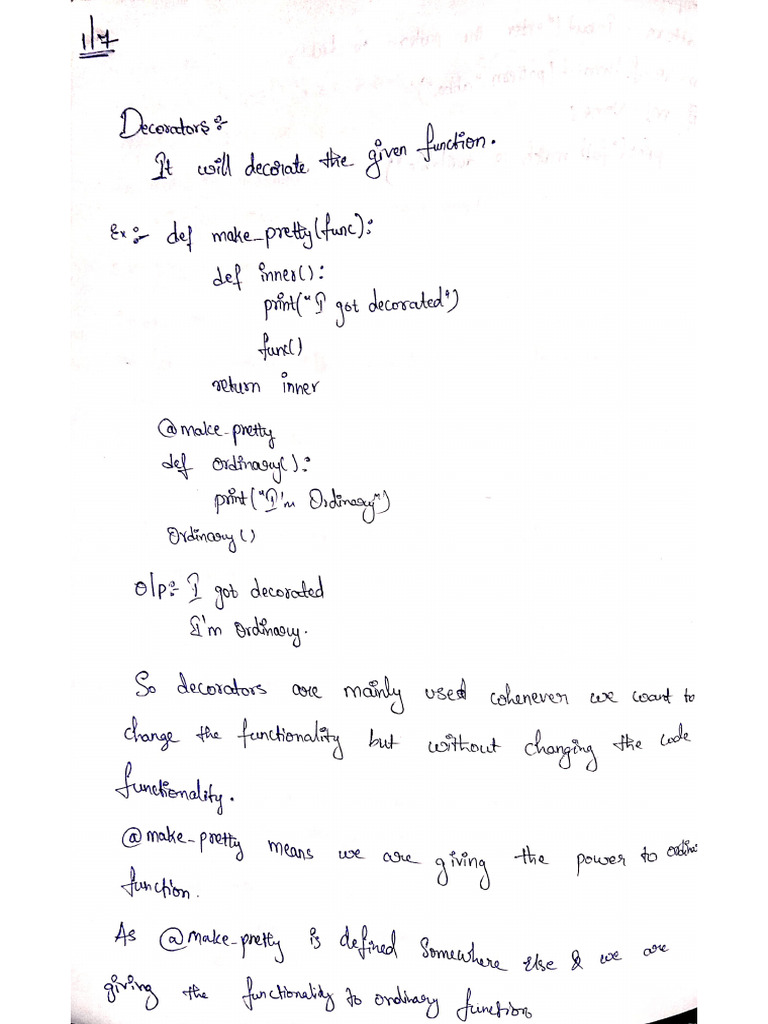 1/7
Decorators:-
It will decorate the given function.
Ex:- def make_pretty(func):
def inner():
print("I got decorated")
func()
return inner
@make_pretty
def ordinary():
print("I'm Ordinary")
Ordinary()
O/p:- I got decorated
I'm Ordinary.
So decorators are mainly used whenever we want to
change the functionality but without changing the code
functionality.
@make_pretty means we are giving the power to ordina
function.
As @make_pretty is defined Somewhere else & we are
giving the functionality to ordinary function